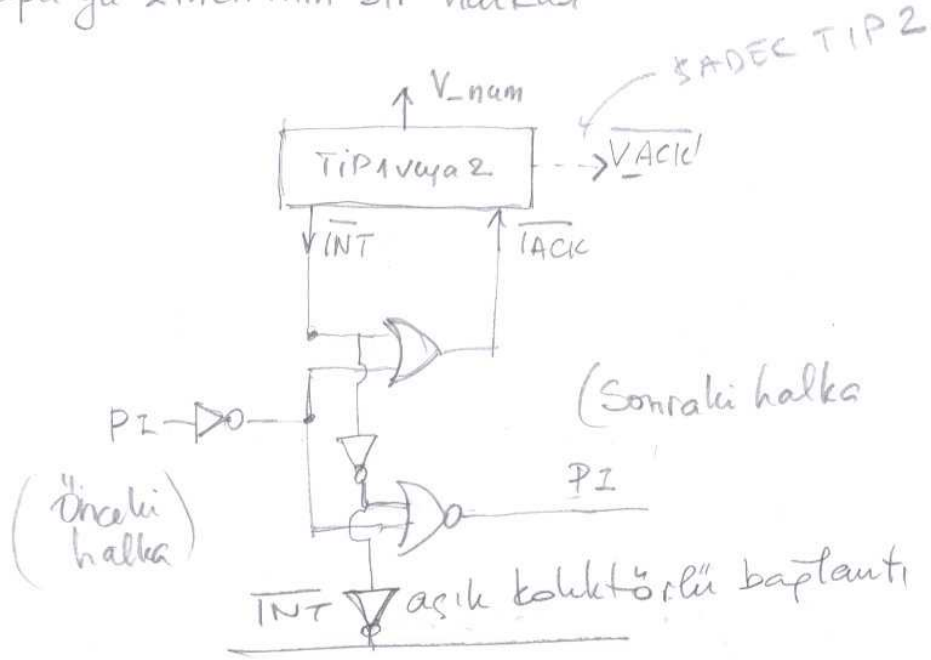 bir halkası
SADEC TIP 2
V_num
TİP 1 veya 2
VACK
INT
IACK
(Sonraki halka
PI
PI
(Önceki
halka)
INT
açık kolektörlü bağlantı